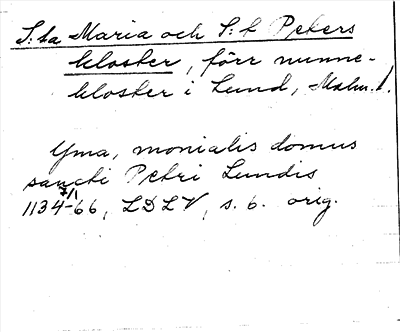 S:ta Maria och S:t Peters
kloster, förr nunne-
kloster i Lund, Malm. l.
Yma, monialis domus
sancti Petri Lundis
7/1
1134-66, LDLV, s. 6. orig.